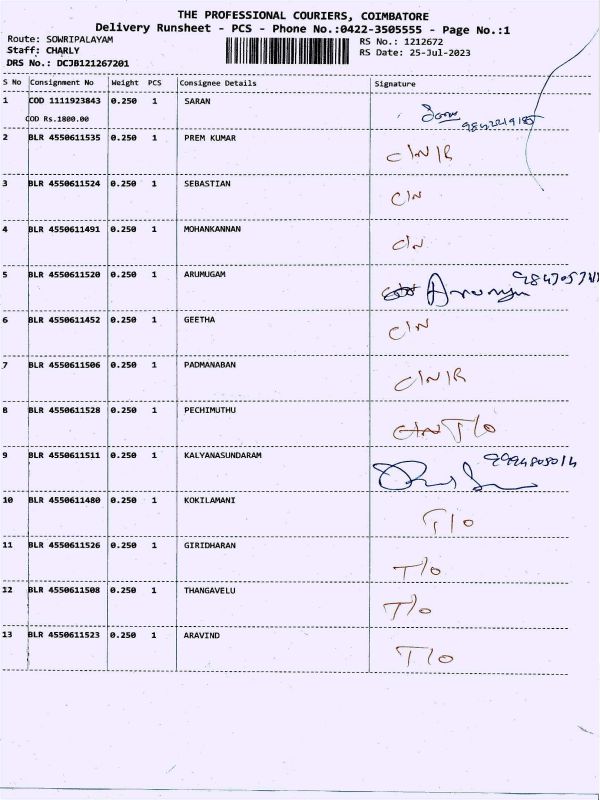 THE PROFESSIONAL COURIERS, COIMBATORE
Delivery Runsheet - PCS - Phone No.:0422-3505555 - Page No.:1
Route: SOWRIPALAYAM
Staff: CHARLY
DRS No.: DCJB121267201
RS No.: 1212672
RS Date: 25-Jul-2023
S No Consignment No Weight PCS Consignee Details Signature
1 COD 1111923843 0.250 1 SARAN
COD Rs.1800.00
2 BLR 4550611535 0.250 1 PREM KUMAR C/N/R
3 BLR 4550611524 0.250 1 SEBASTIAN C/N
4 BLR 4550611491 0.250 1 MOHANKANNAN C/N
5 BLR 4550611520 0.250 1 ARUMUGAM
6 BLR 4550611452 0.250 1 GEETHA C/N
7 BLR 4550611506 0.250 1 PADMANABAN C/N/R
8 BLR 4550611528 0.250 1 PECHIMUTHU T/O
9 BLR 4550611511 0.250 1 KALYANASUNDARAM 9994808014
10 BLR 4550611480 0.250 1 KOKILAMANI T/O
11 BLR 4550611526 0.250 1 GIRIDHARAN T/O
12 BLR 4550611508 0.250 1 THANGAVELU T/O
13 BLR 4550611523 0.250 1 ARAVIND T/O